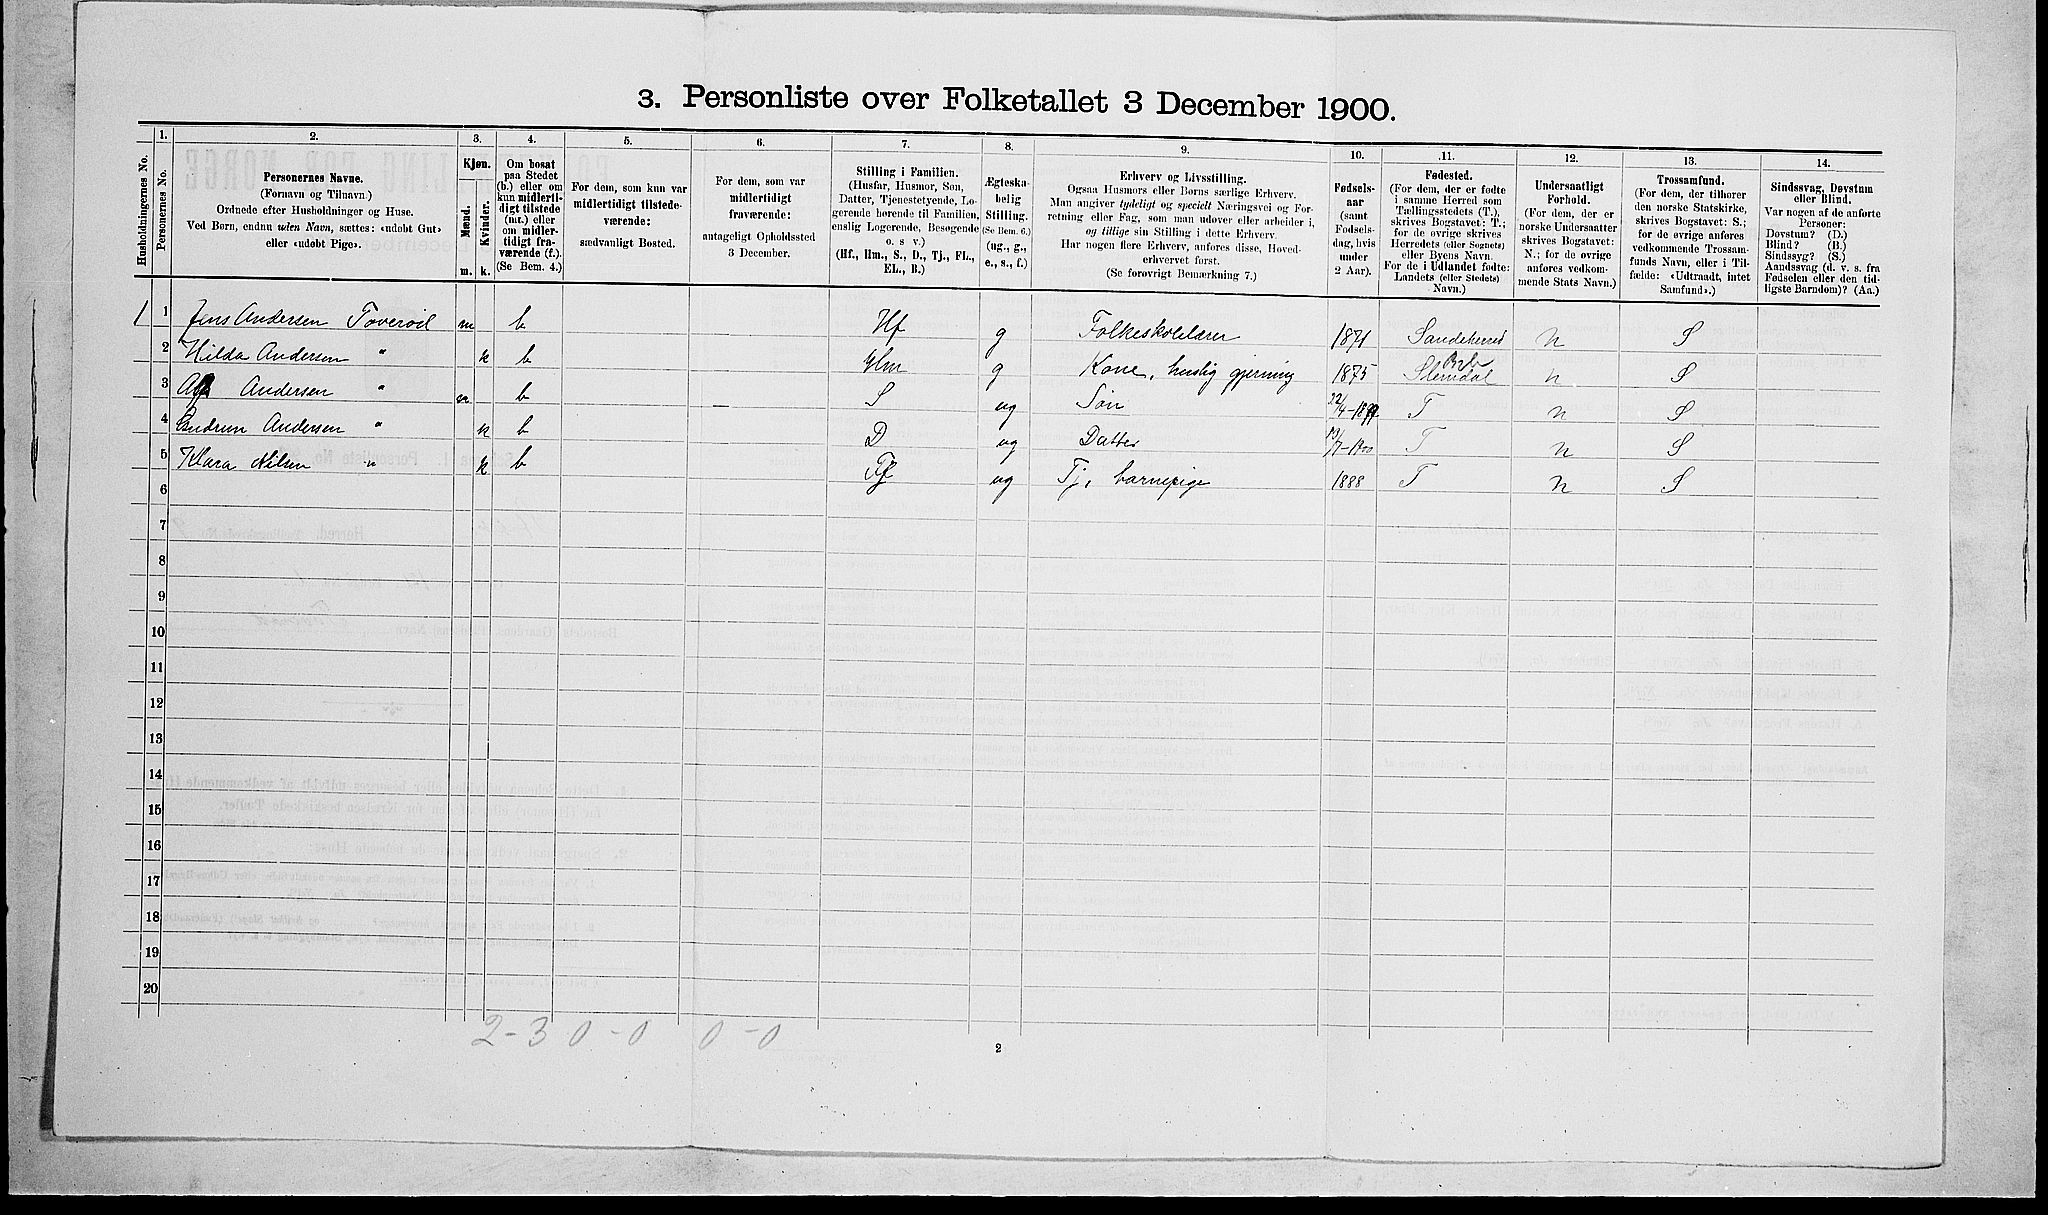 3. Personliste over Folketallet 3 December 1900.
1. 2. 3. 4. 5. 6. 7. 8. 9. 10. 11. 12. 13. 14.
Husholdningernes No.
Personernes No.
Personernes Navne.
(Fornavn og Tilnavn.)
Ordnede efter Husholdninger og Huse.
Ved Børn, endnu uden Navn, sættes: «udobt Gut»
eller «udobt Pige».
Kjøn.
Mænd.
Kvinder.
m. k.
Om bosat
paa Stedet
(b.) eller om
kun midlerti-
digt tilstede
(mt.) eller
om midler-
tidigt fra-
værende (f.).
(Se Bem. 4.)
For dem, som kun var
midlertidigt tilstede-
værende:
sædvanligt Bosted.
For dem, som var
midlertidigt
fraværende:
antageligt Opholdssted
3 December.
Stilling i Familien.
(Husfar, Husmor, Søn,
Datter, Tjenestetyende, Lo-
gerende hørende til Familien,
enslig Logerende, Besøgende
o. s v.)
(Hf., Hm., S., D., Tj., FL.,
EL., B.)
Ægteska-
belig
Stilling.
(Se Bem. 6.)
(ug., g.,
e., s., f.)
Erhverv og Livsstilling.
Ogsaa Husmors eller Børns særlige Erhverv.
Man angiver tydeligt og specielt Næringsvei og For-
retning eller Fag, som man udover eller arbeider i,
og tillige sin Stilling i dette Erhverv.
Har nogen flere Erhverv, anføres disse, Hoved-
erhvervet først.
(Se forøvrigt Bemærkning 7.)
Fødsels-
aar
(samt
Fødsels-
dag, hvis
under
2 Aar).
Fødested.
(For dem, der er fødte
i samme Herred som
Tællingsstedets (T.),
skrives Bogstavet: T.;
for de øvrige skrives
Herredets (eller Sognets)
eller Byens Navn.
For de i Udlandet fødte:
Landets (eller Stedets)
Navn.)
Undersaatligt
Forhold.
(For dem, der er
norske Undersaatter
skrives Bogstavet:
N.; for de øvrige
anføres vedkom-
mende Stats Navn.)
Trossamfund.
(For dem, der tilhører
den norske Statskirke,
skrives Bogstavet: S.;
for de øvrige anføres
vedkommende Trossam-
funds Navn, eller i Til-
fælde: «Udtraadt, intet
Samfund».)
Sindssvag, Døvstum
eller Blind.
Var nogen af de anførte
Personer:
Døvstum? (D.)
Blind? (B.)
Sindssyg? (S.)
Aandssvag (d. v. s. fra
Fødselen eller den tid-
ligste Barndom)? (Aa.)
1 1 Jens Andersen m b Hf g Folkeskolelærer 1871 Sandeherred N S
2 Hilda Andersen " k b Hm g Kone, huslig gjerning 1875 Slemdal N S
3 Andersen " m b S ug Søn T N S
4 Gudrun Andersen " k b D ug Datter T N S
5 Klara Nilsen " k b Tj ug Tj, barnepige 1888 T N S
6
7
8
9
10
11
12
13
14
15
16
17
18
19
20
2-3 0-0 0-0
2